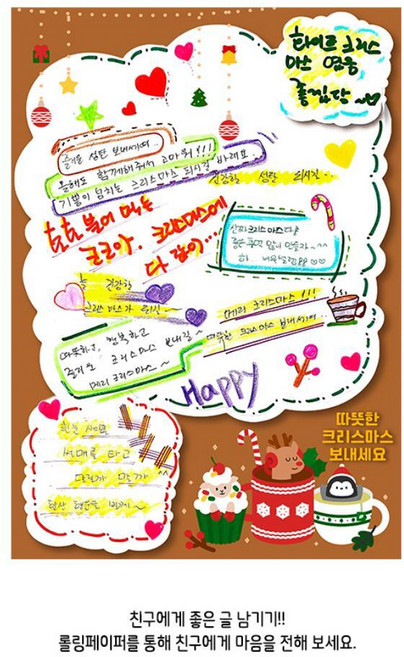 화이트 크리스
마스 영웅
홍길당
즐거운 성탄 보내세여..
올해도 함께해줘서 고마워!!!
기쁨이 넘치는 크리스마스 되길 바래요
건강한 성탄 되시길..
호호 불어 먹는
코코아. 크리스마스에
다 같이...
크리스마스다!
좋은 추억 많이 만들자~^^
건강한
메리 크리스마스!!!
따뜻한 크리스마스 보내세여..
따뜻하고, 행복하고
즐거운 크리스마스 보내길~
메리 크리스마스~
HAPPY
썰매를 타고
달려 볼까
항상 행운을 빌게~
따뜻한
크리스마스
보내세요
친구에게 좋은 글 남기기!!
롤링페이퍼를 통해 친구에게 마음을 전해 보세요.